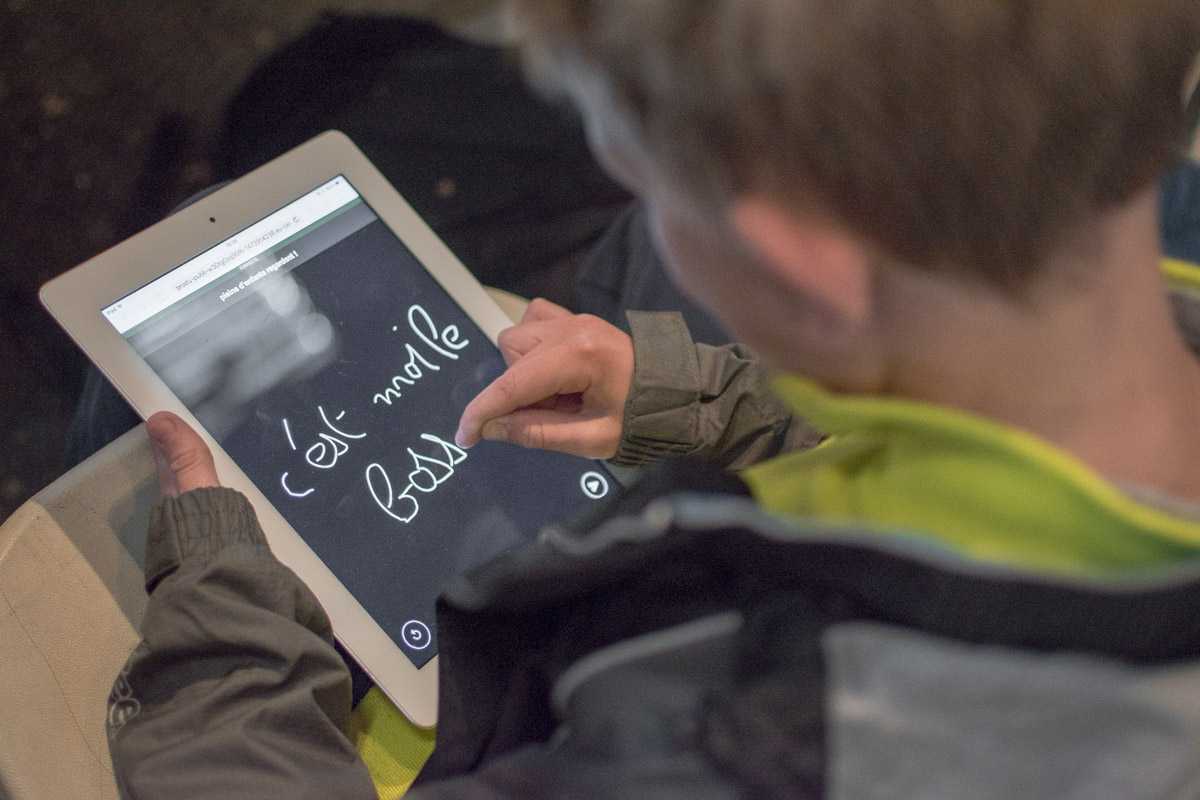 iPad
pleins d'enfants regardent !
c'est moi le
boss